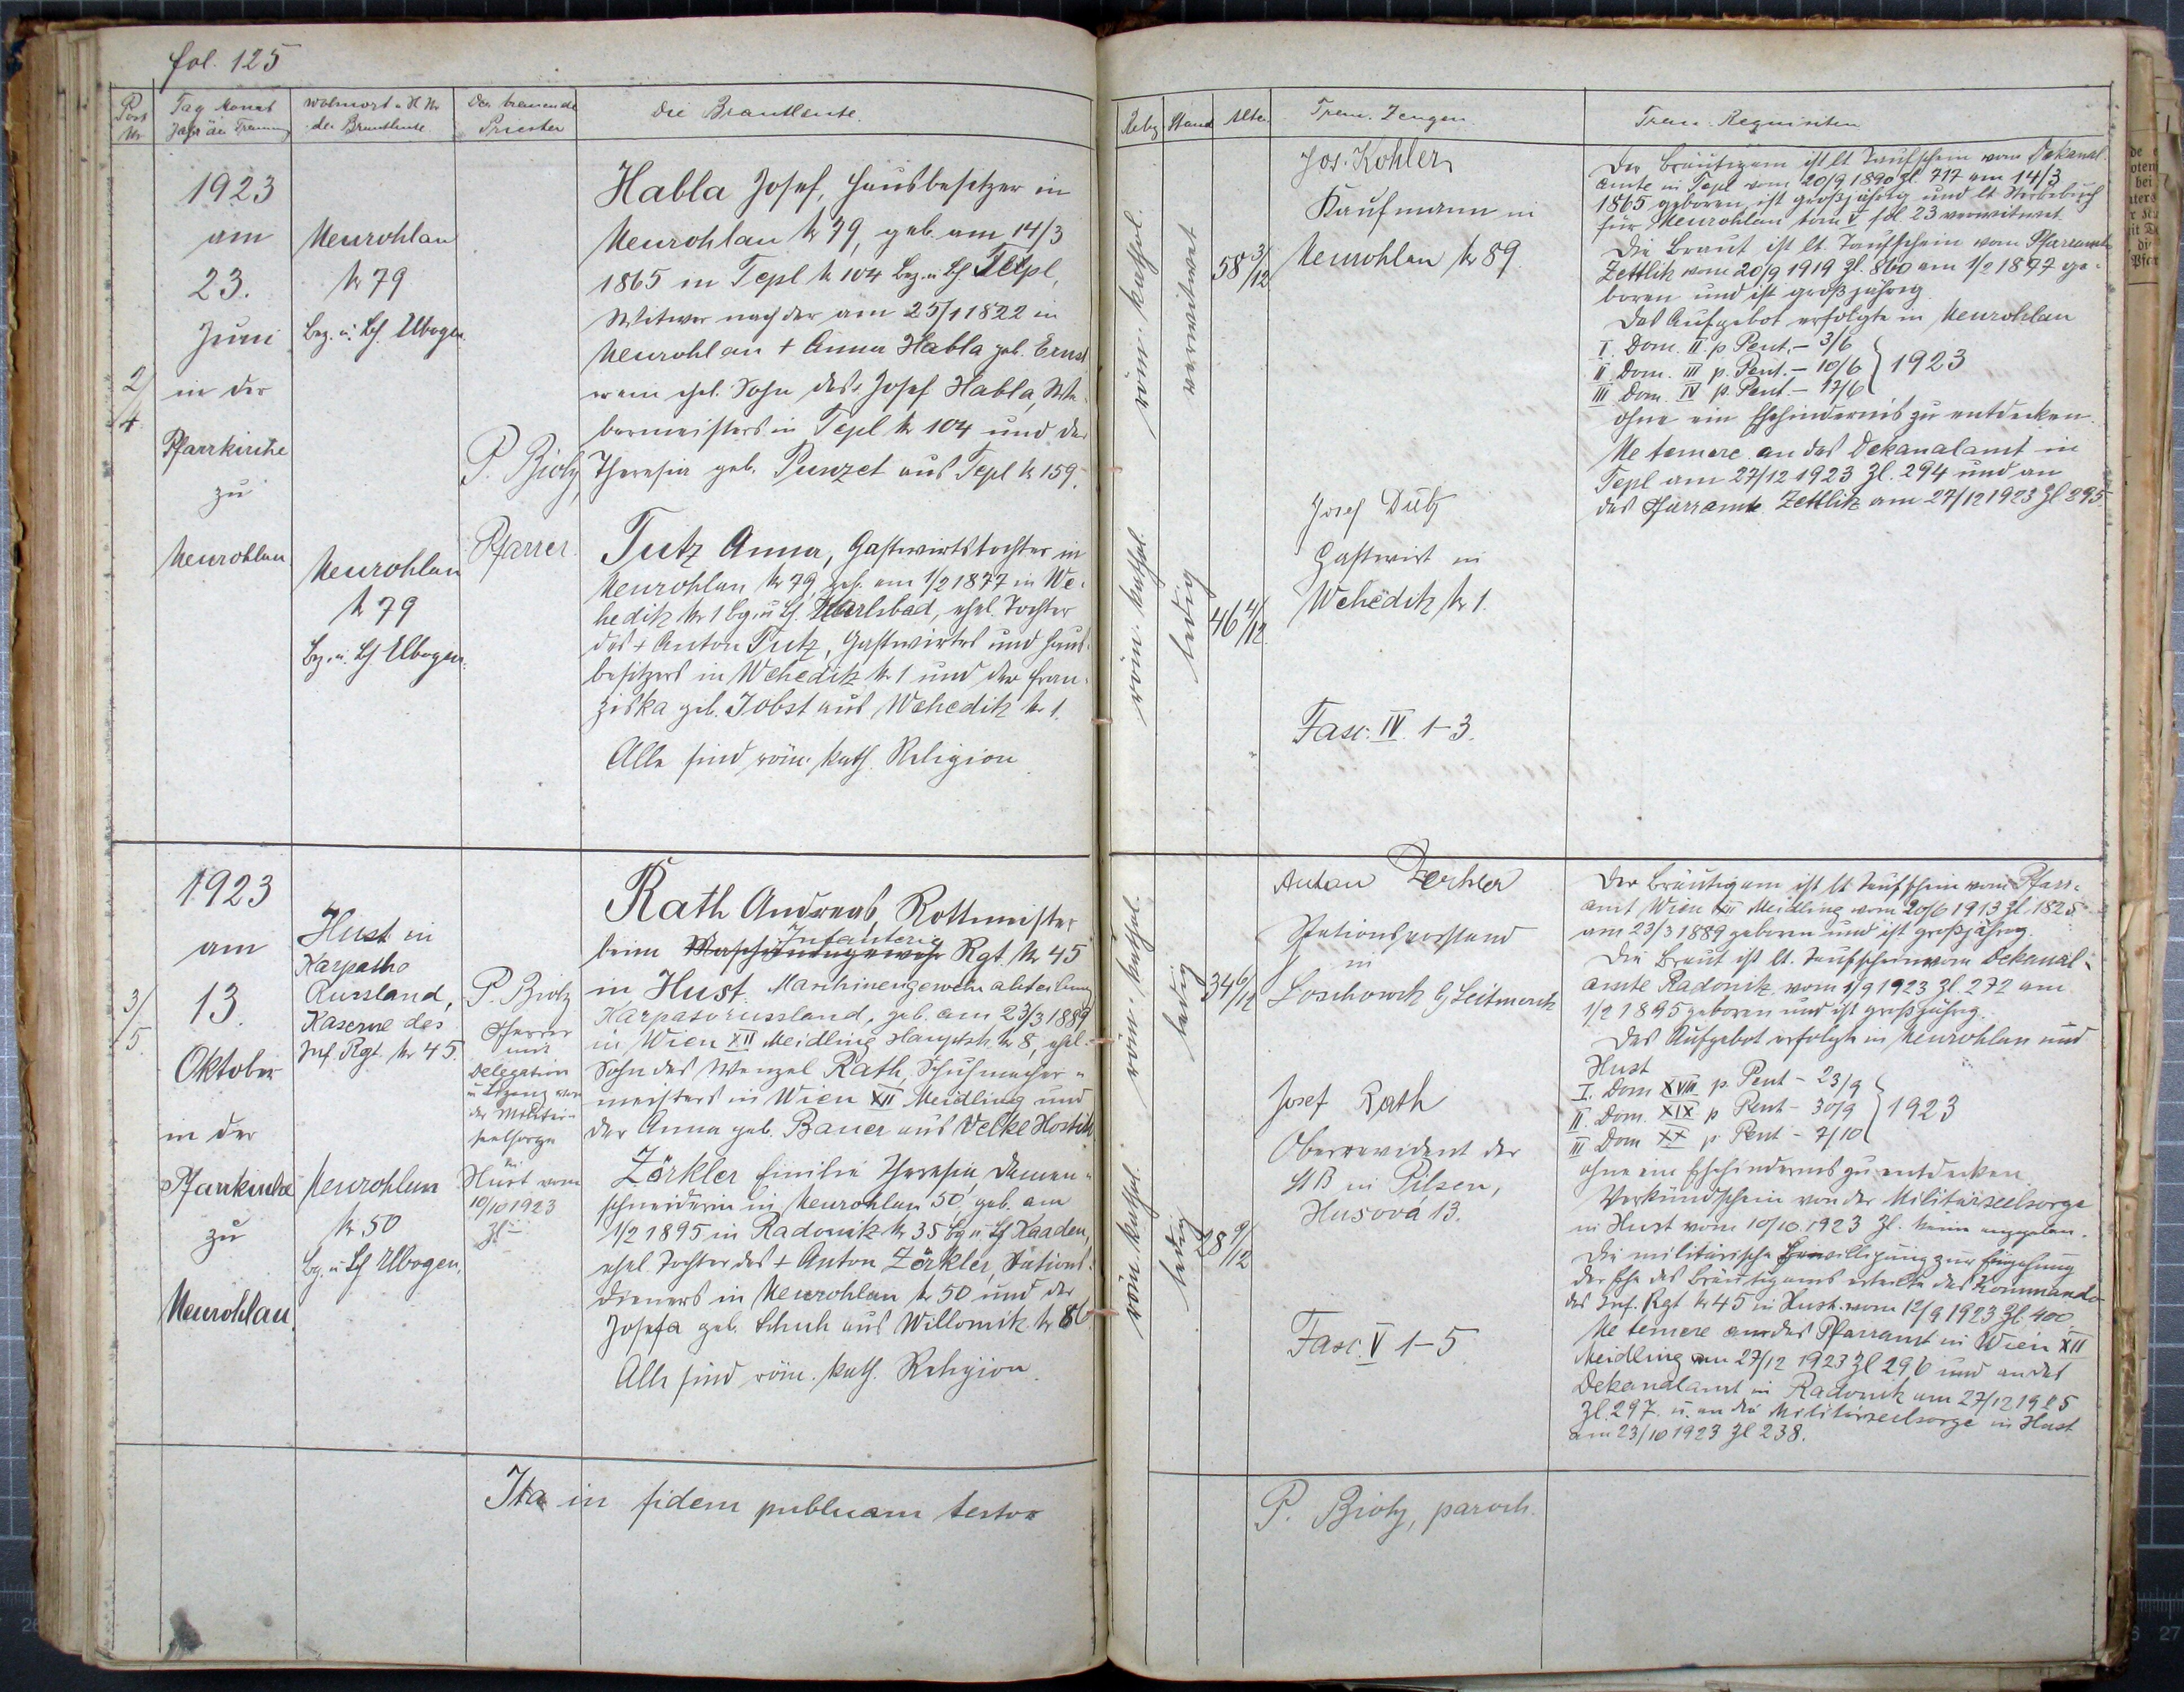 fol. 125
Post Nr
Tag Monat Jahr der Trauung
Wohnort u. H. Nr der Brautleute
Der trauende Priester
Die Brautleute.
Relig.
Stand
Alter
Trau. Zeugen
Trau. Requisiten
2/4
1923
am
23.
Juni
in der
Pfarrkirche
zu
Neurohlau
Neurohlau
Nr 79
Bez. u. Lf. Elbogen
Neurohlau
Nr 79
Bz. u. Lf Elbogen
P. Biolz,
Pfarrer.
Habla Josef, Hausbesitzer in
Neurohlau Nr 79, geb. am 14/3
1865 in Tepl Nr 104 Bez. u. Lf. Tepl,
Witwer nach der am 25/1 1822 in
Neurohlau + Anna Habla geb. Ernst
ehel. Sohn des Josef Habla, We-
bermeisters in Tepl Nr 104 und der
Theresia geb. Punzet aus Tepl Nr 159.
Tutz Anna, Gastwirtstochter in
Neurohlau Nr 79, geb. am 1/2 1877 in We-
heditz Nr 1 Bz. u Lf. Karlsbad, ehel. Tochter
des + Anton Tutz, Gastwirtes und Haus-
besitzers in Wehěditz Nr 1 und der Fran-
ziska geb. Jobst aus Weheditz Nr 1.
Alle sind röm. kath. Religion
röm. kathol.
verwitwet
58 3/12
röm. kathol.
ledig
46 4/12
Jos. Kohler
Kaufmann in
Neurohlau Nr 89
Josef Dutz
Gastwirt in
Wehěditz Nr 1.
Fasc. IV. 1-3.
Der Bräutigam ist lt. Taufschein vom Dekanal-
amte in Tepl vom 20/9 1890 Zl. 717 am 14/3
1865 geboren, ist großjährig und lt. Sterbebuch
für Neurohlau tom V fol 23 verwitwet.
Die Braut ist lt. Taufschein vom Pfarramte
Zettlitz vom 20/9 1919 Zl. 860 am 1/2 1877 ge-
boren und ist großjährig
Das Aufgebot erfolgte in Neurohlau
I. Dom. II. p Pent. - 3/6
II Dom. III p. Pent. - 10/6 } 1923
III Dom. IV p. Pent - 17/6
ohne ein Ehehindernis zu entdecken.
Ne temere an das Dekanalamt in
Tepl am 27/12 1923 Zl. 294 und an
das Pfarramte Zettlitz am 27/12 1923 Zl 295.
3/5.
1923
am
13.
Oktober
in der
Pfarrkirche
zu
Neurohlau.
Hust in
Karpatho
Russland,
Kaserne des
Inf. Rgt. Nr 45.
Neurohlau
Nr 50
Bz. u Lf Elbogen.
P. Biolz
Pfarrer
mit
Delegation
der Militär-
seelsorge
in
Hust vom
10/10 1923
Zl -
Rath Andreas, Rottmeister
beim Maschinengewehr Infanterie Rgt. Nr 45
in Hust. Maschinengewehrabteilung
Karpatorussland, geb. am 23/3 1889
in Wien XII Meidling Hauptstr. Nr 8, ehel.
Sohn des Wenzel Rath, Schuhmacher-
meisters in Wien XII Meidling und
der Anna geb. Bauer aus Velké Hostitz
Zörkler Emilie Theresia Damen-
schneiderin in Neurohlau 50, geb. am
1/2 1895 in Radonitz Nr 35 Bz u. Lf Kaaden,
ehel. Tochter des + Anton Zörkler, Stations-
dieners in Neurohlau Nr 50 und der
Josefa geb. Schuh aus Willomitz Nr 86.
Alle sind röm. kath. Religion.
röm. kathol.
ledig
34 6/12
röm. kathol.
ledig
28 9/12
Anton Zörkler
Stationsvorstand
in
Loschowitz b/ Leitmeritz
Josef Rath
Oberrevident der
StB in Pilsen,
Husova 13.
Fasc. V 1-5
Der Bräutigam ist lt Taufschein vom Pfarr-
amt Wien XII Meidling vom 20/6 1913 Zl. 1825
am 23/3 1889 geboren und ist großjährig.
Die Braut ist lt. Taufschein vom Dekanal-
amte Radonitz vom 1/9 1923 Zl. 272 am
1/2 1895 geboren und ist großjährig.
Das Aufgebot erfolgte in Neurohlau und
Hust
I. Dom XVIII p. Pent - 23/9
II. Dom. XIX p Pent - 30/9 } 1923
III Dom XX p. Pent - 7/10
ohne ein Ehehindernis zu entdecken
Verkündschein von der Militärseelsorge
in Hust vom 10/10 1923 Zl. keine angegeben.
Die militärische Bewilligung zur Eingehung
der Ehe des Bräutigams erteilte das Kommando
des Inf. Rgt Nr 45 in Hust. vom 12/9 1923 Zl. 400
Ne temere an das Pfarramt in Wien XII
Meidling am 27/12 1923 Zl 296 und an das
Dekanalamt in Radonitz am 27/12 1925
Zl. 297. u. an die Militärseelsorge in Hust
am 23/10 1923 Zl 238.
Ita in fidem publicam testor
P. Biolz, paroch.